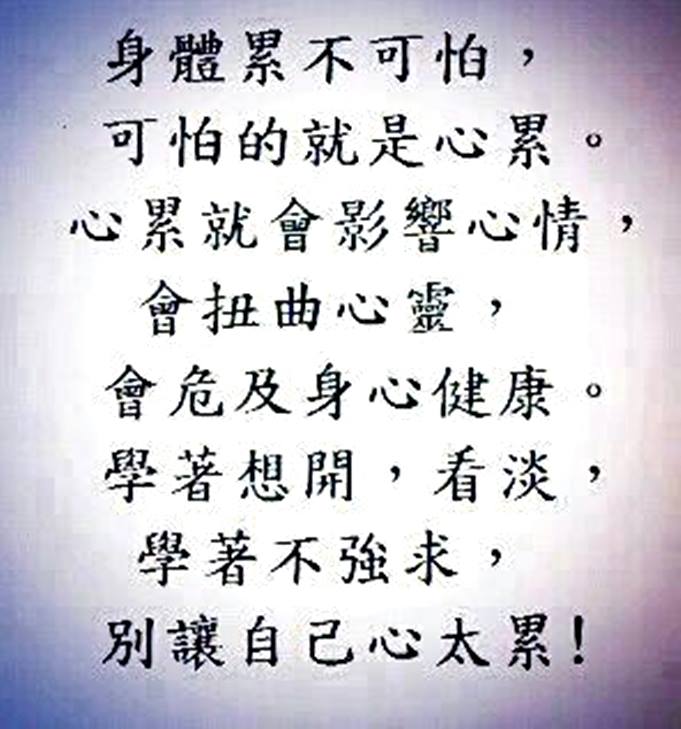 身體累不可怕，
可怕的就是心累。
心累就會影響心情，
會扭曲心靈，
會危及身心健康。
學著想開，看淡，
學著不強求，
別讓自己心太累！